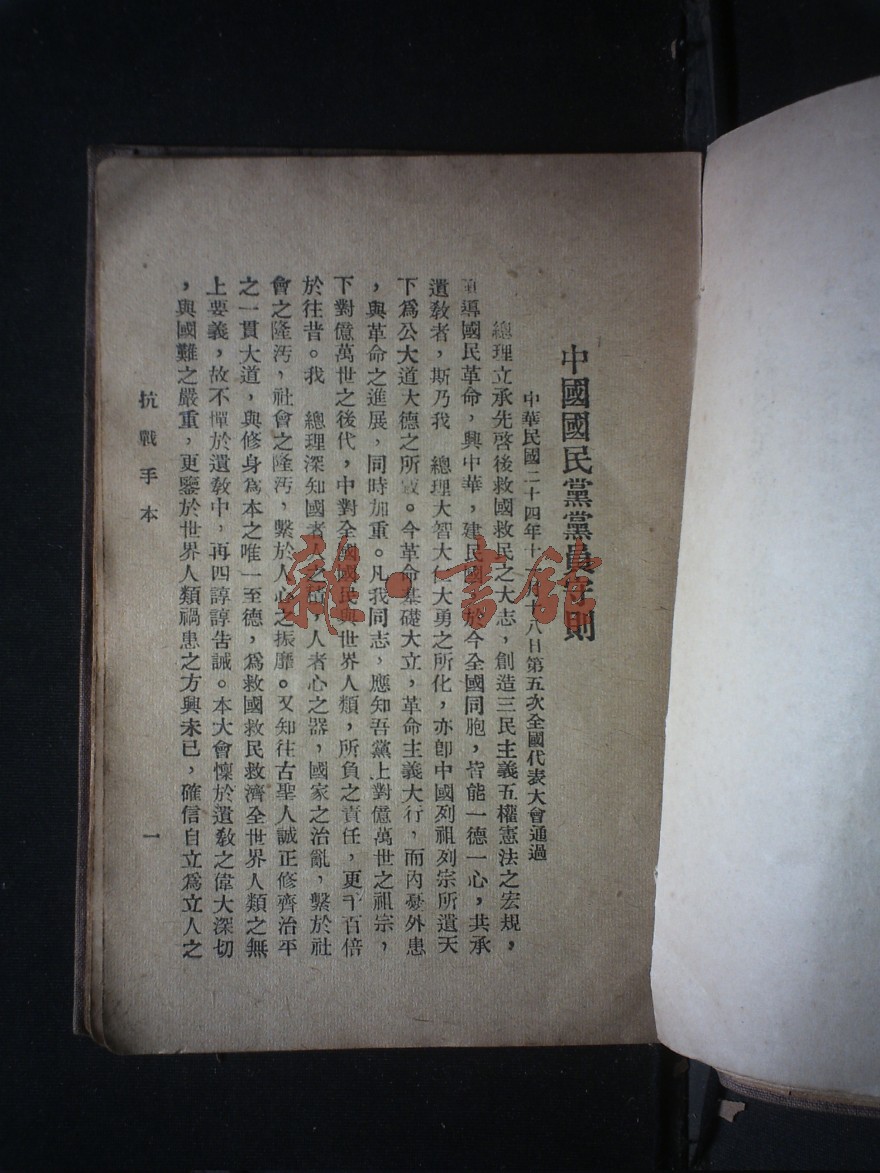 中國國民黨黨員守則
中華民國二十四年十一月十八日第五次全國代表大會通過
總理立承先啓後救國救民之大志，創造三民主義五權憲法之宏規，
導國民革命，興中華，建民國。於今全國同胞，皆能一德一心，共承
遺教者，斯乃我　總理大智大仁大勇之所化，亦卽中國列祖列宗所遺天
下爲公大道大德之所。今革命基礎大立，革命主義大行，而內憂外患
，與革命之進展，同時加重。凡我同志，應知吾黨上對億萬世之祖宗，
下對億萬世之後代，中對全國國民與世界人類，所負之責任，更千百倍
於往昔。我　總理深知國者人之積，人者心之器，國家之治亂，繫於社
會之隆汚，社會之隆汚，繫於人心之振靡。又知往古聖人誠正修齊治平
之一貫大道，與修身爲本之唯一至德，爲救國救民救濟全世界人類之無
上要義，故不憚於遺教中，再四諄諄告誡。本大會懍於遺教之偉大深切
，與國難之嚴重，更鑒於世界人類禍患之方興未已，確信自立爲立人之
抗戰手本
一
雜·書館